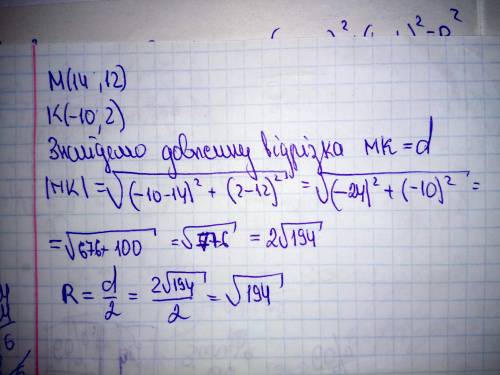 M(14;12)
K(-10;2)
Знайдемо довжину відрізка MK = d
|MK| = √((-10-14)² + (2-12)²) = √((-24)² + (-10)²) =
= √(676+100) = √776 = 2√194
R = d/2 = 2√194/2 = √194